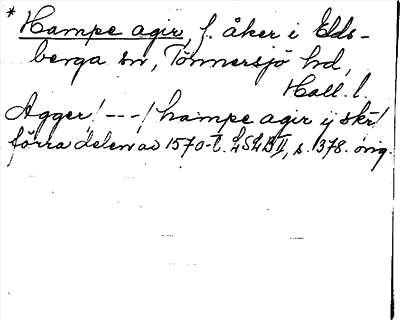 * Hampe agir, f. åker i Elds-
berga sn, Tönnersjö hd,
Hall. l.
Agger/---/hampe agir ij skr/
förra delen av 1570-t. LSLB II, s. 1378. orig.